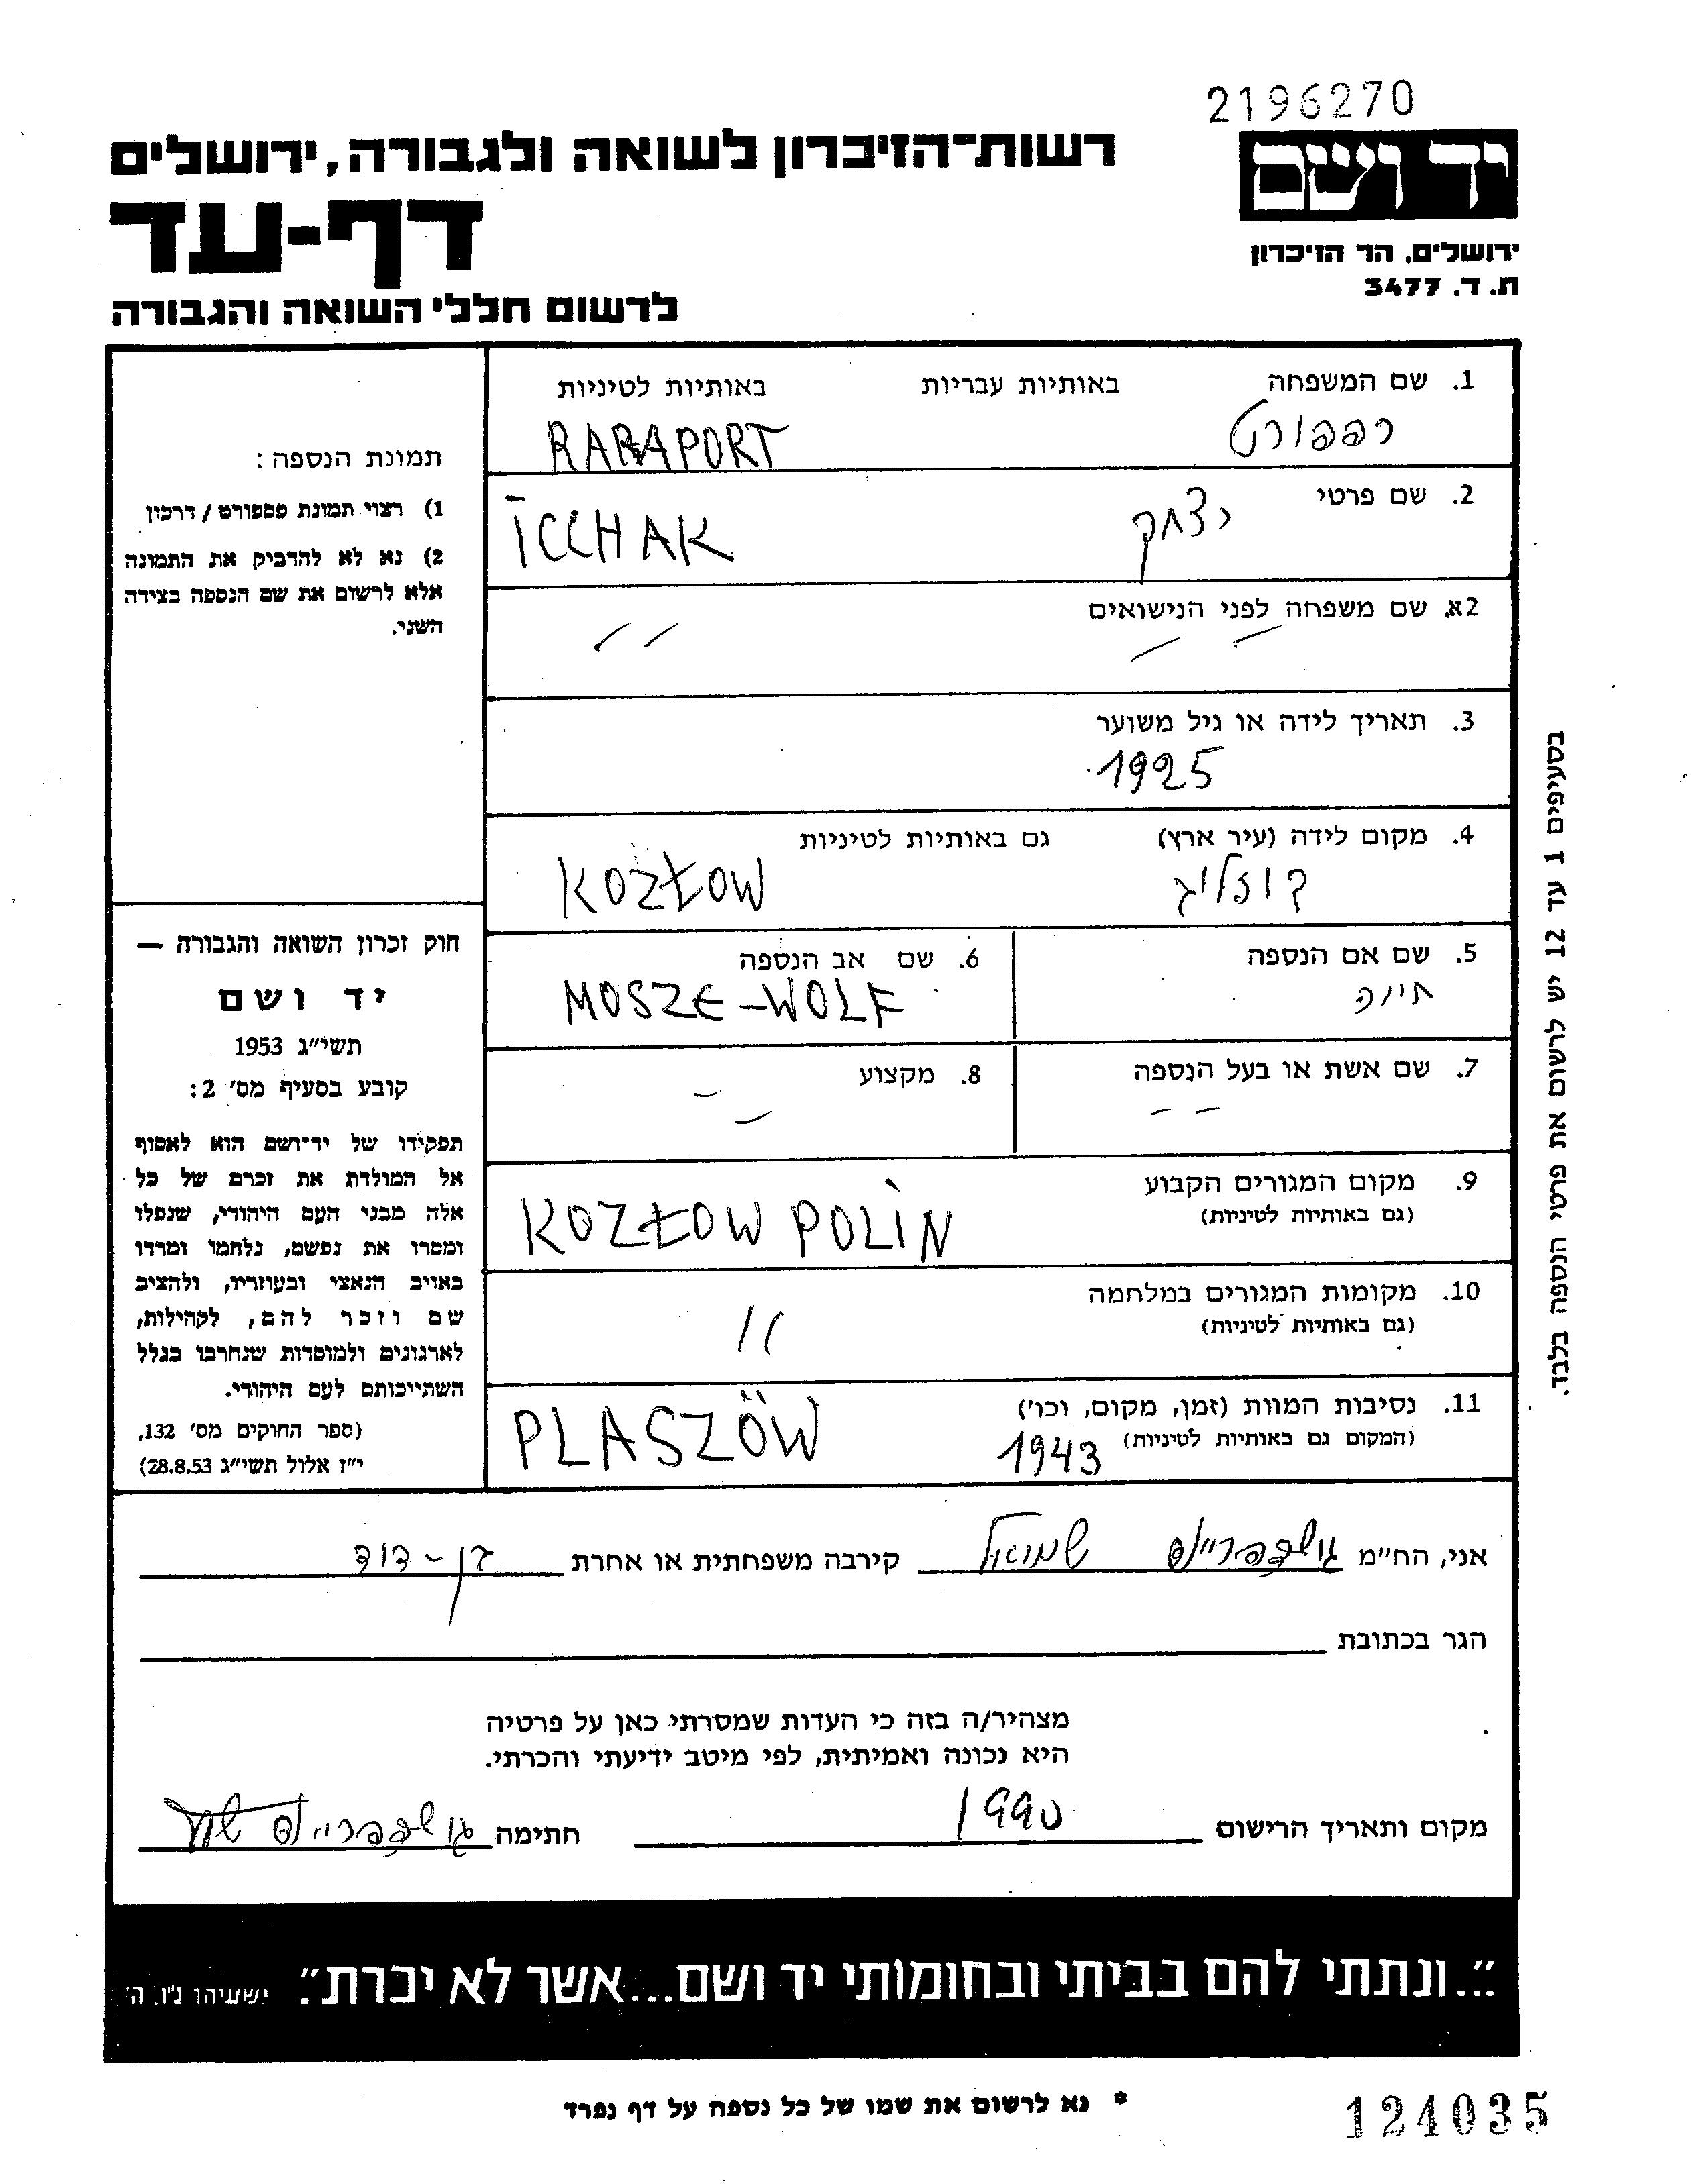 2196270
רשות־הזיכרון לשואה ולגבורה, ירושלים
יד ושם
דף-עד
ירושלים. הר הזיכרון
ת. ד. 3477
לרשום חללי השואה והגבורה
1. שם המשפחה באותיות עבריות באותיות לטיניות
רפפורט RARAPORT
2. שם פרטי
יצחק ICCHAK
2א. שם משפחה לפני הנישואים
3. תאריך לידה או גיל משוער
1925
4. מקום לידה (עיר ארץ) גם באותיות לטיניות
קוזלוב KOZŁOW
5. שם אם הנספה
חיה
6. שם אב הנספה
MOSZE-WOLF
7. שם אשת או בעל הנספה
8. מקצוע
9. מקום המגורים הקבוע
(גם באותיות לטיניות)
KOZŁOW POLIN
10. מקומות המגורים במלחמה
(גם באותיות לטיניות)
11. נסיבות המוות (זמן, מקום, וכו')
(המקום גם באותיות לטיניות)
1943 PLASZÖW
תמונת הנספה:
1) רצוי תמונת פספורט / דרכון
2) נא לא להדביק את התמונה
אלא לרשום את שם הנספה בצידה
השני.
חוק זכרון השואה והגבורה —
יד ושם
תשי״ג 1953
קובע בסעיף מס׳ 2:
תפקידו של יד־ושם הוא לאסוף
אל המולדת את זכרם של כל
אלה מבני העם היהודי, שנפלו
ומסרו את נפשם, נלחמו ומרדו
באויב הנאצי ובעוזריו, ולהציב
שם וזכר להם, לקהילות,
לארגונים ולמוסדות שנחרבו בגלל
השתייכותם לעם היהודי.
(ספר החוקים מס׳ 132,
י״ז אלול תשי״ג 28.8.53)
בסעיפים 1 עד 12 יש לרשום את פרטי הנספה בלבד.
אני, הח״מ שמואל קירבה משפחתית או אחרת בן-דוד
הגר בכתובת
מצהיר/ה בזה כי העדות שמסרתי כאן על פרטיה
היא נכונה ואמיתית, לפי מיטב ידיעתי והכרתי.
מקום ותאריך הרישום 1990 חתימה
״...ונתתי להם בביתי ובחומותי יד ושם...אשר לא יכרת״. ישעיהו נ״ו, ה׳
* נא לרשום את שמו של כל נספה על דף נפרד
124035